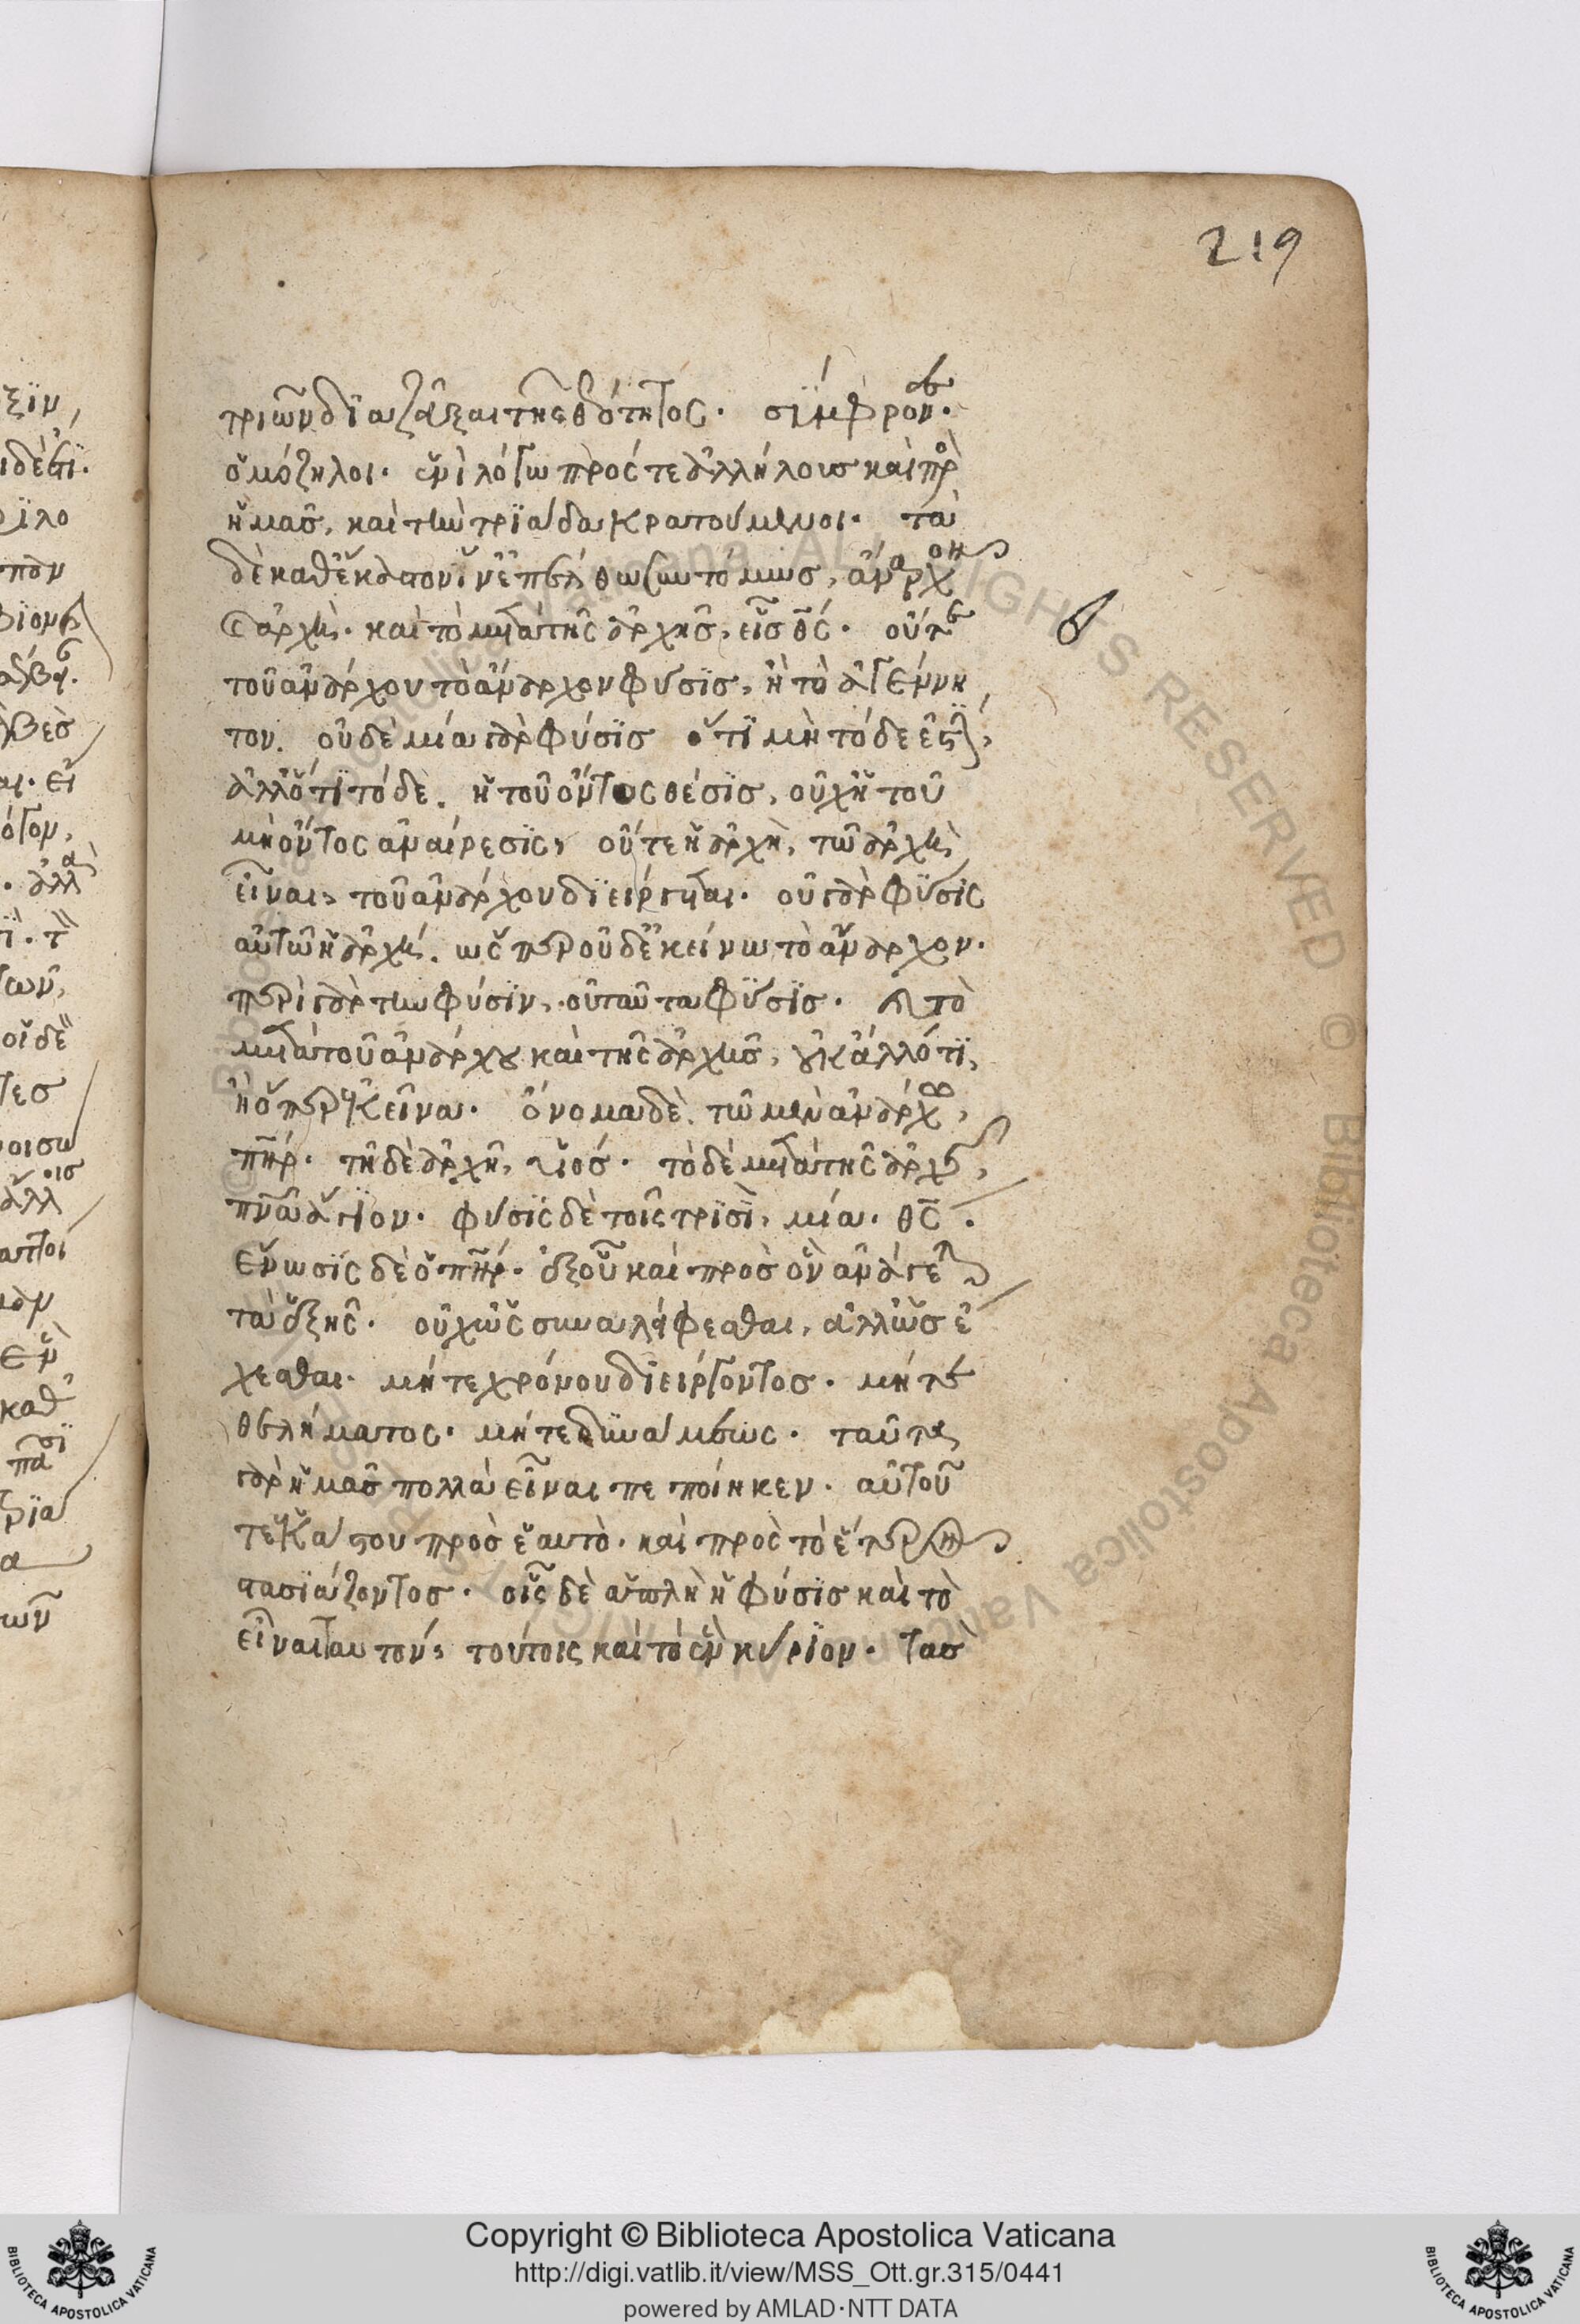 219
τριῶν διαζεῦξαι τῆς θεότητος. σύμφρονες.
ὁμόζηλοι. ἑνὶ λόγω πρός τε ἀλλήλους καὶ πρὸς
ἡμᾶς, καὶ τὴν τριάδα κρατούμενοι. τὰ
δὲ καθέκαστον ἵν' ἐπέλθω συντόμως, ἄναρχον
(καὶ) ἀρχὴ. καὶ τὸ μετὰ τῆς ἀρχῆς, εἷς θς. οὔτε
τοῦ ἀνάρχου τὸ ἄναρχον φύσις, ἢ τὸ ἀγέννη
τον. οὐδὲ μία γὰρ φύσις ὅτι μὴ τόδε ἐστί,
ἀλλ' ὅτι τόδε. ἡ τοῦ ὄντος θέσις, οὐχ ἡ τοῦ
μὴ ὄντος ἀναίρεσις, οὔτε ἡ ἀρχὴ, τῶ ἀρχὴ
εἶναι, τοῦ ἀνάρχου διείργεται. οὐ γὰρ φύσις
αὐτῶ ἡ ἀρχή. ὥσπερ οὐδ' ἐκείνω τὸ ἄναρχον.
περὶ γὰρ τὴν φύσιν, οὐ ταῦτα φύσις. καὶ τὸ
μετὰ τοῦ ἀνάρχου καὶ τῆς ἀρχῆς, οὐκ ἄλλό τι,
ἢ ὅπερ ἐκεῖνα. ὄνομα δὲ. τῶ μὲν ἀνάρχω,
πῆρ. τῆ δὲ ἀρχῆ, υἱός. τὸ δὲ μετὰ τῆς ἀρχῆς,
πνα ἅγιον. φύσις δὲ τοῖς τρισὶ, μία. θς.
ἕνωσις δὲ ὁ πῆρ. ἐξ οὗ καὶ πρὸς ὃν ἀνάγεται
τὰ ἑξῆς. οὐχ ὡς συναλείφεσθαι, ἀλλ' ὡς ἔ
χεσθαι. μήτε χρόνου διείργοντος. μήτε
θελήματος. μήτε δυνάμεως. ταῦτα
γὰρ ἡμᾶς πολλὰ εἶναι πεποίηκεν. αὐτοῦ
τε ἑκάστου πρὸς ἑαυτὸ. καὶ πρὸς τὸ ἕτερον
στασιάζοντος. οἷς δὲ ἁπλῆ ἡ φύσις καὶ τὸ
εἶναι ταυτόν, τούτοις καὶ τὸ ἓν κύριον. τὰς
Copyright © Biblioteca Apostolica Vaticana
http://digi.vatlib.it/view/MSS_Ott.gr.315/0441
powered by AMLAD·NTT DATA